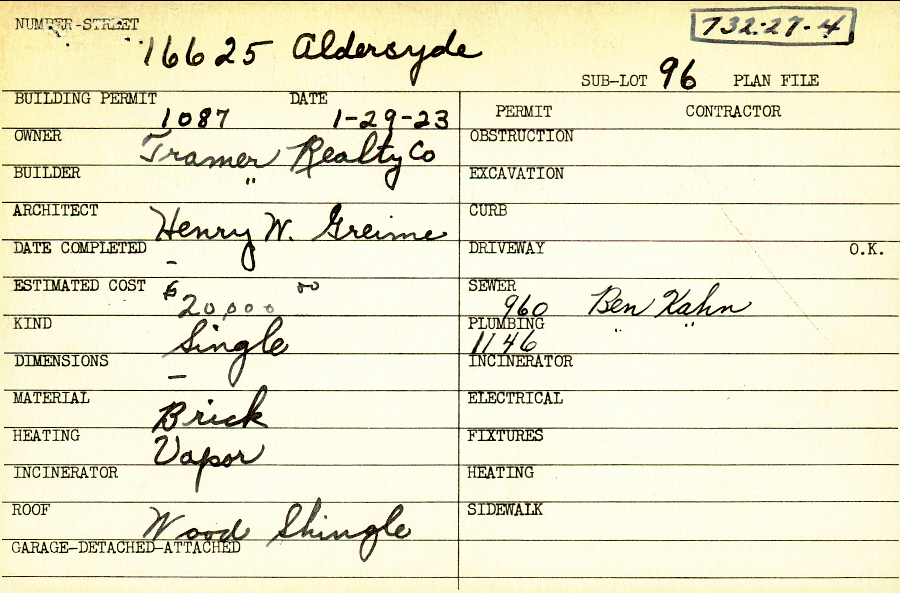 NUMBER-STREET
732-27-4
16625 Aldersyde
SUB-LOT 96 PLAN FILE
BUILDING PERMIT DATE
1087 1-29-23
OWNER
Tramer Realty Co
BUILDER
"
ARCHITECT
Henry W. Greime
DATE COMPLETED
-
ESTIMATED COST
$20,000 00
KIND
Single
DIMENSIONS
-
MATERIAL
Brick
HEATING
Vapor
INCINERATOR
ROOF
Wood Shingle
GARAGE-DETACHED-ATTACHED
PERMIT CONTRACTOR
OBSTRUCTION
EXCAVATION
CURB
DRIVEWAY O.K.
SEWER
960 Ben Kahn
PLUMBING
1146 " "
INCINERATOR
ELECTRICAL
FIXTURES
HEATING
SIDEWALK